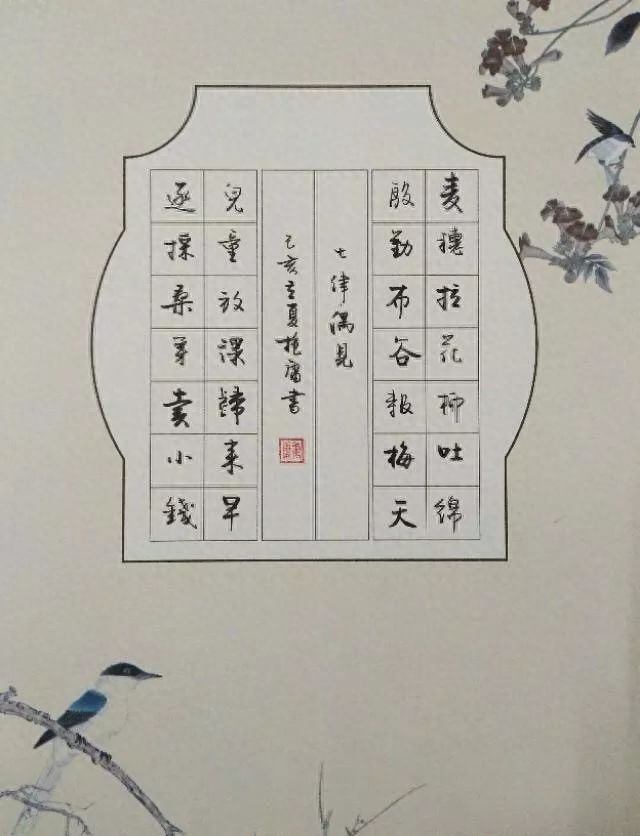 麦穗拉花柳吐綿
殷勤布谷報梅天
七律偶見
己亥立夏庸書
兒童放課歸来早
逐採桑芽賣小錢